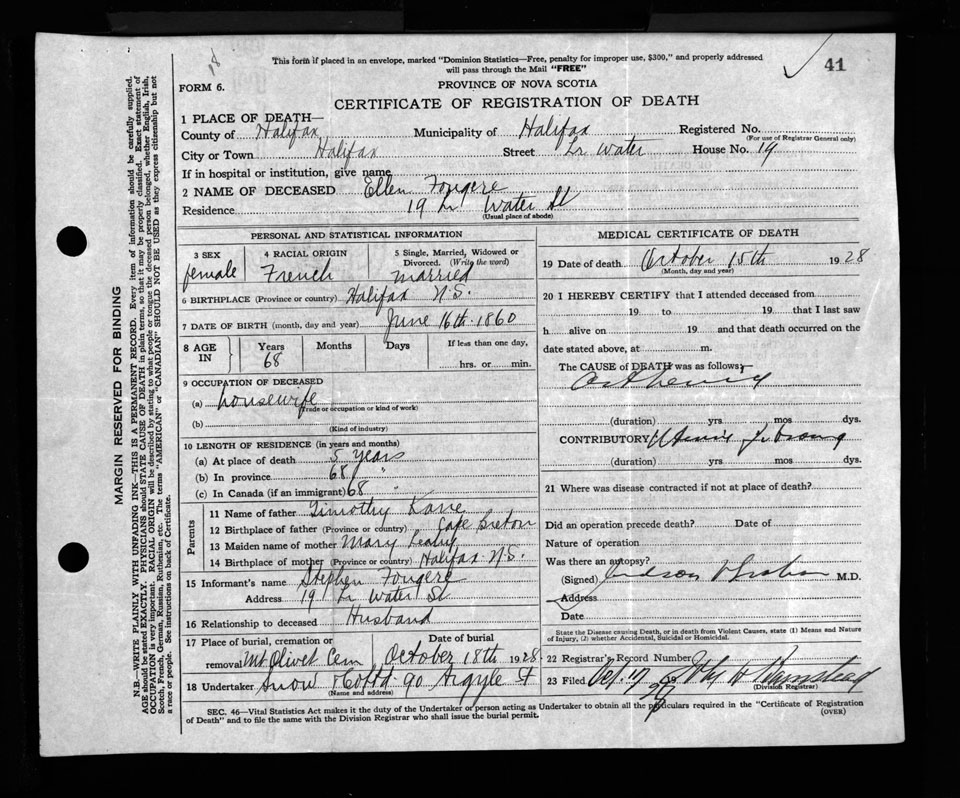 18
This form if placed in an envelope, marked "Dominion Statistics—Free, penalty for improper use, $300," and properly addressed
will pass through the Mail "FREE"
41
FORM 6.
PROVINCE OF NOVA SCOTIA
CERTIFICATE OF REGISTRATION OF DEATH
1 PLACE OF DEATH—
County of Halifax Municipality of Halifax Registered No.
(For use of Registrar General only)
City or Town Halifax Street Lr Water House No. 19
If in hospital or institution, give name
2 NAME OF DECEASED Ellen Fougere
Residence 19 Lr Water St
(Usual place of abode)
PERSONAL AND STATISTICAL INFORMATION
3 SEX 4 RACIAL ORIGIN 5 Single, Married, Widowed or
Divorced. (Write the word)
female French married
6 BIRTHPLACE (Province or country) Halifax N.S.
7 DATE OF BIRTH (month, day and year) June 16th 1860
8 AGE IN Years Months Days If less than one day,
68 hrs. or min.
9 OCCUPATION OF DECEASED
(a) housewife
(Trade or occupation or kind of work)
(b)
(Kind of industry)
10 LENGTH OF RESIDENCE (in years and months)
(a) At place of death 5 years
(b) In province 68 "
(c) In Canada (if an immigrant) 68 "
Parents
11 Name of father Timothy Kane
12 Birthplace of father (Province or country) Cape Breton
13 Maiden name of mother Mary
14 Birthplace of mother (Province or country) Halifax N.S.
15 Informant's name Stephen Fougere
Address 19 Lr Water St
16 Relationship to deceased Husband
17 Place of burial, cremation or Date of burial
removal Mt Olivet Cem October 18th 1928
18 Undertaker Snow & Co Ltd 90 Argyle St
(Name and address)
MEDICAL CERTIFICATE OF DEATH
19 Date of death October 15th 1928
(Month, day and year)
20 I HEREBY CERTIFY that I attended deceased from
19 to 19 that I last saw
h alive on 19 and that death occurred on the
date stated above, at m.
The CAUSE of DEATH was as follows:—
Asthenia
(duration) yrs mos dys.
CONTRIBUTORY
(duration) yrs mos dys.
21 Where was disease contracted if not at place of death?
Did an operation precede death? Date of
Nature of operation
Was there an autopsy?
(Signed) Judson Graham M.D.
Address
Date
State the Disease causing Death, or in death from Violent Causes, state (1) Means and Nature
of Injury, (2) whether Accidental, Suicidal or Homicidal.
22 Registrar's Record Number
23 Filed Oct. 17
(Division Registrar)
SEC. 46—Vital Statistics Act makes it the duty of the Undertaker or person acting as Undertaker to obtain all the particulars required in the "Certificate of Registration
of Death" and to file the same with the Division Registrar who shall issue the burial permit. (OVER)
MARGIN RESERVED FOR BINDING
N.B.—WRITE PLAINLY WITH UNFADING INK—THIS IS A PERMANENT RECORD. Every item of information should be carefully supplied.
AGE should be stated EXACTLY. PHYSICIANS should STATE CAUSE OF DEATH in plain terms, so that it may be properly classified. Exact statement of
OCCUPATION is very important. RACIAL ORIGIN will be described by stating to what people or tongue the deceased person belonged, whether English, Irish,
Scotch, French, German, Russian, Ruthenian, etc. The terms "AMERICAN" or "CANADIAN" SHOULD NOT BE USED as they express citizenship but not
a race or people. See instructions on back of Certificate.